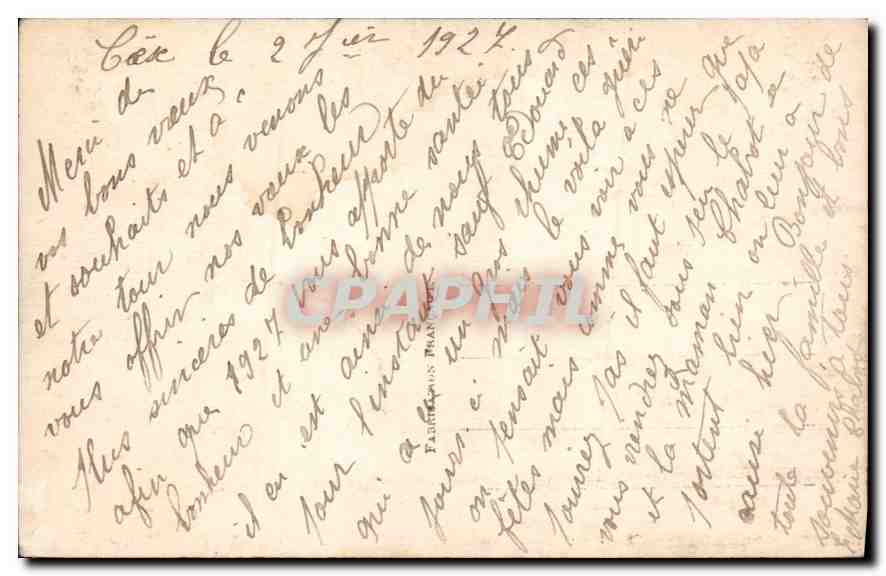 le 2 Jier 1927.
Merci de
vos bons vœux
et souhaits et a
notre tour nous venons
vous offrir nos vœux les
plus sincères de bonheur
afin que 1927 vous apporte du
bonheur et une bonne santé
il en est ainsi de nous tous
pour l'instant sauf Edouard
qui a eu un gros rhume ces
jours ci mais le voila guéri
on pensait vous voir a ces
fêtes mais comme vous ne
pouvez pas il faut esperer que
vous viendrez sous peu le papa
et la maman Chabot se
portent bien on leur a
causé hier Bonjour de
toute la famille et bons
souvenirs a tous
Chabot
FABRICATION FRANÇAISE
CPAPHIL